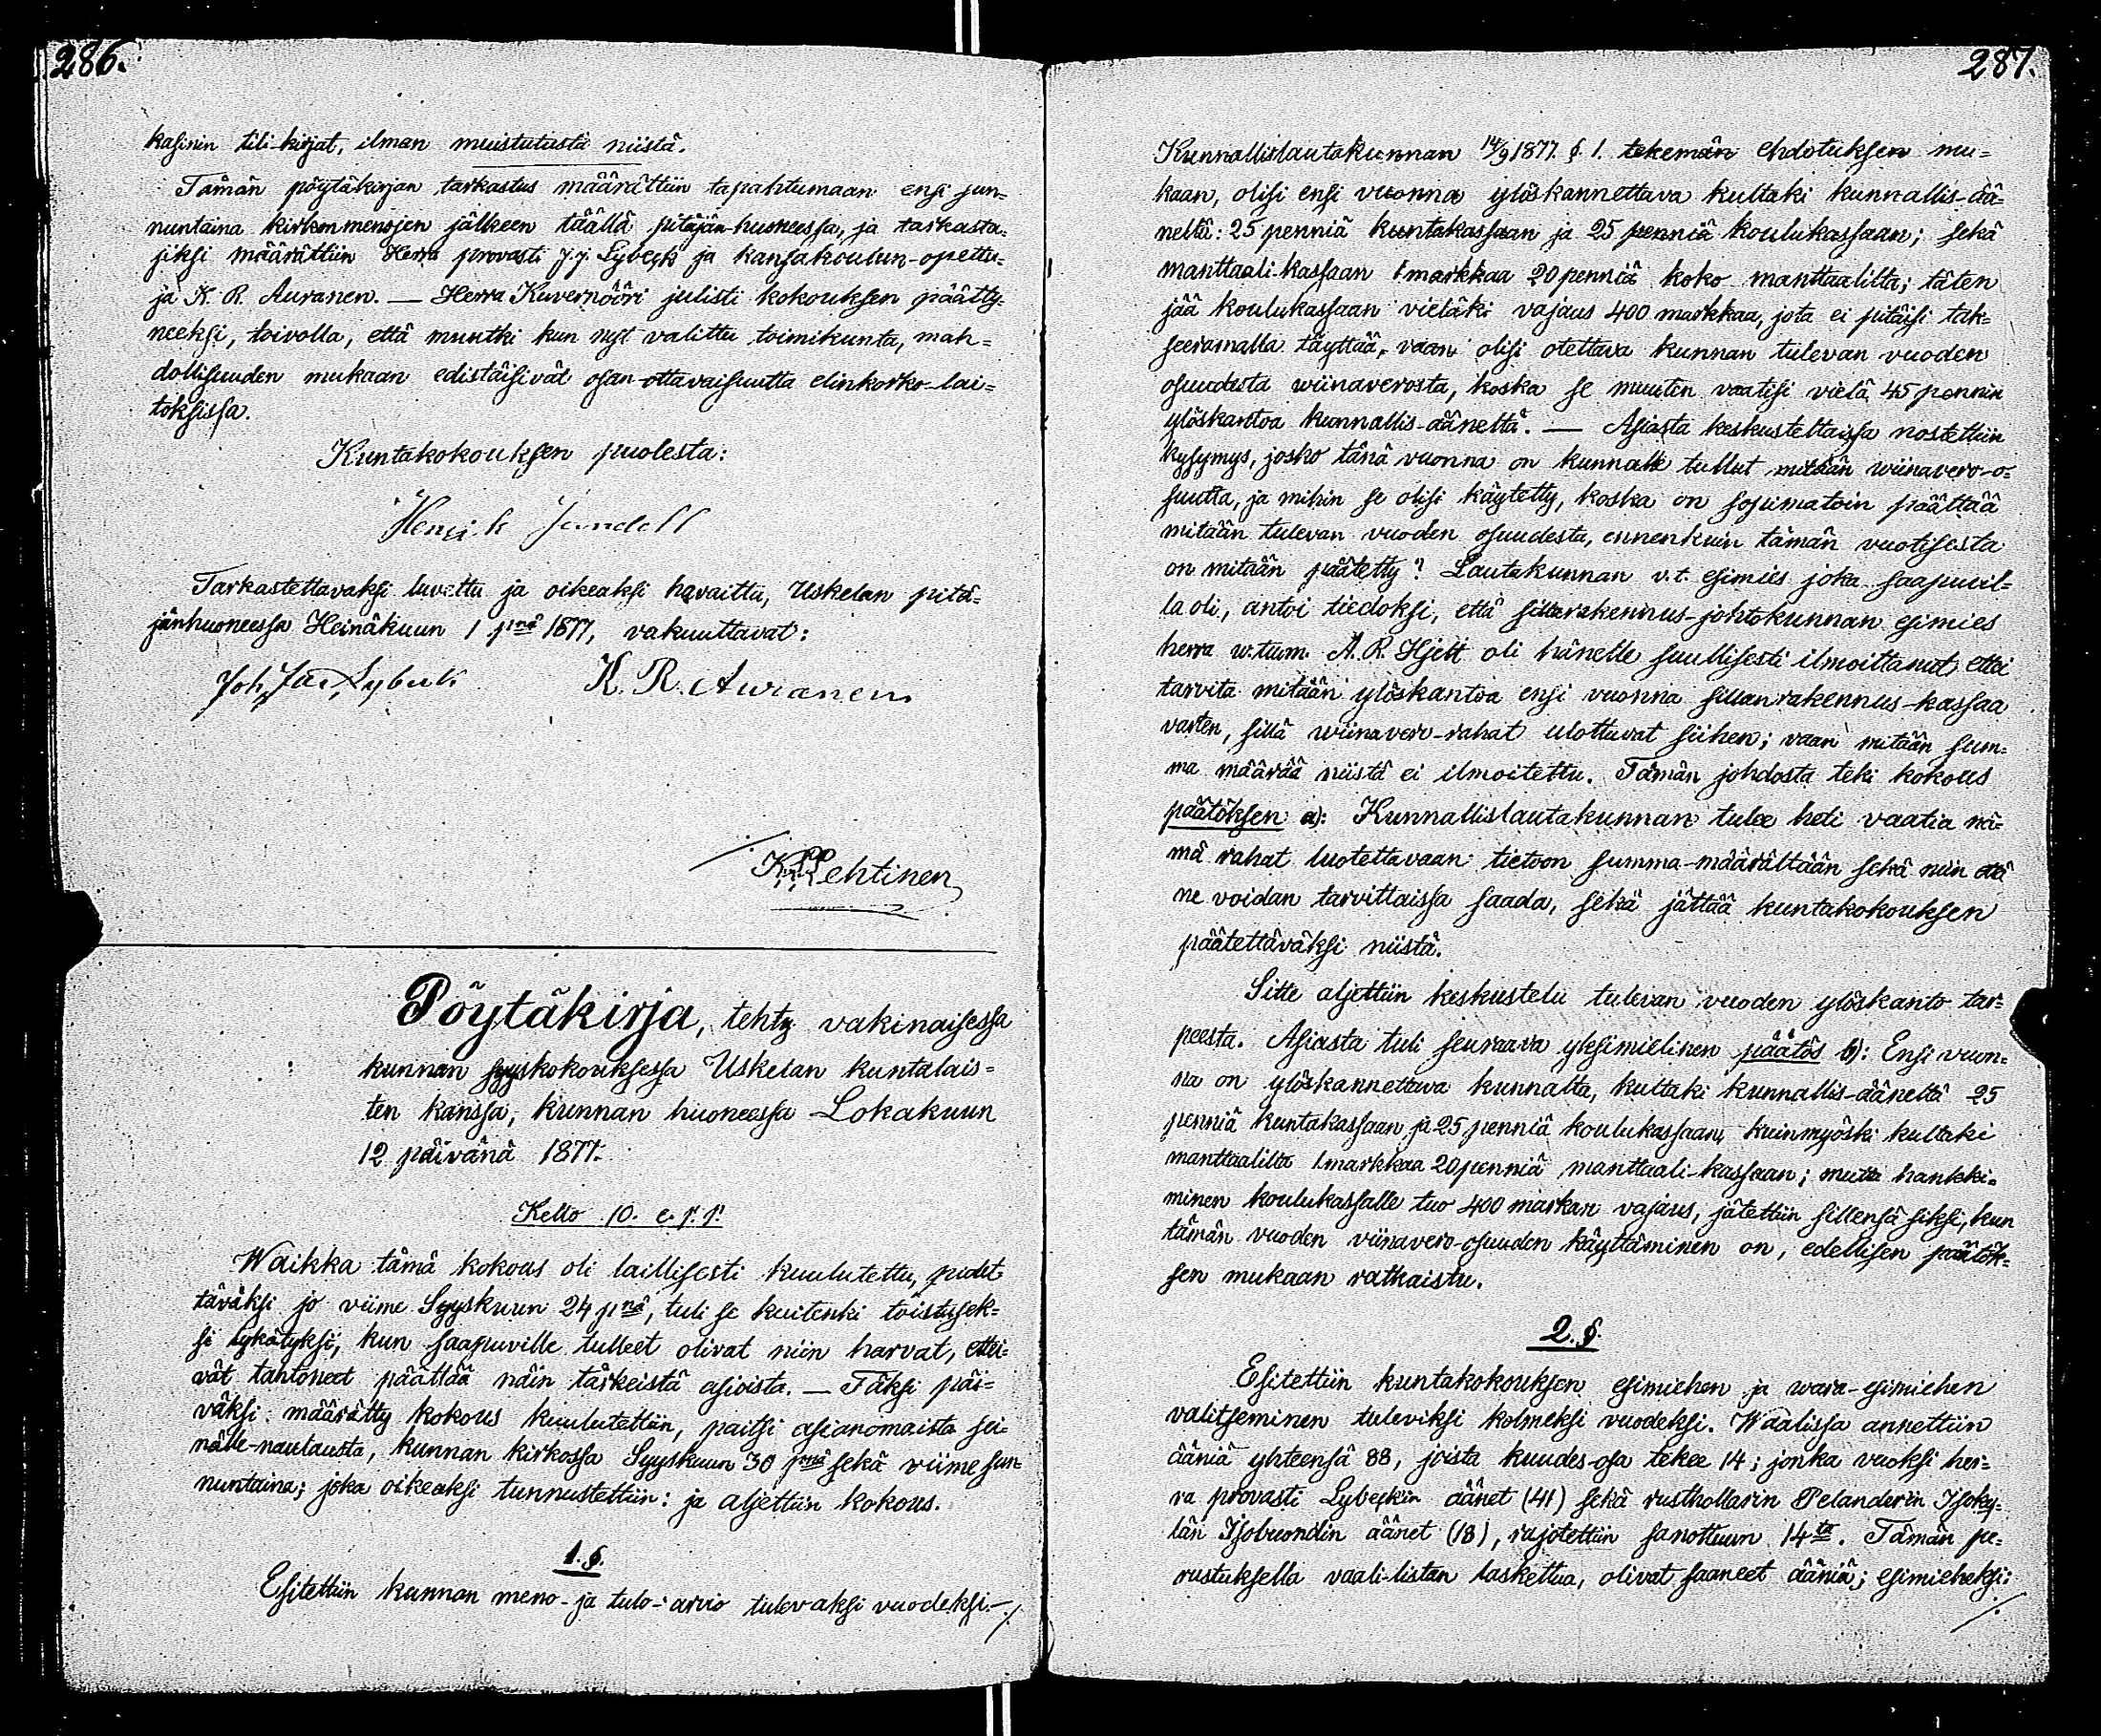 286.
kasinin tili-kirjat, ilman muistutusta niistä.
Tämän pöytäkirjan tarkastus määrättiin tapahtumaan ensi sun-
nuntaina kirkonmenojen jälkeen täällä pitäjän-huoneessa, ja tarkasta-
jiksi määrättiin Herra provasti J. J. Lybeck ja kansakoulun-opetta-
ja K. R. Auranen. — Herra Kuvernööri julisti kokouksen päätty-
neeksi, toivolla, että muutki kun nyt valittu toimikunta, mah-
dollisuuden mukaan edistäisivät osan-ottavaisuutta elinkorko-lai-
toksissa.
Kuntakokouksen puolesta:
Henrik Jundell
Tarkastettavaksi luvettu ja oikeaksi havaittu, Uskelan pitä-
jänhuoneessa Heinäkuun 1 pnä 1877, vakuuttavat:
Joh. Jac. Lybeck K. R. Auranen
K. Lehtinen
Pöytäkirja, tehty vakinaisessa
kunnan syyskokouksessa Uskelan kuntalais-
ten kanssa, kunnan huoneessa Lokakuun
12 päivänä 1877.
Kello 10. e. p. p.
Waikka tämä kokous oli laillisesti kuulutettu, pidet
täväksi jo viime Syyskuun 24 pnä, tuli se kuitenki toistusek-
si lykätyksi, kun saapuville tulleet olivat niin harvat, ettei-
vät tahtoneet päättää näin tärkeistä asioista. — Täksi päi-
väksi määrätty kokous kuulutettiin, paitsi asianomaista sei-
nälle-naulausta, kunnan kirkossa Syyskuun 30 pnä sekä viime sun-
nuntaina; joka oikeaksi tunnustettiin: ja aljettiin kokous.
1. §.
Esitettiin kunnan meno- ja tulo-arvio tulevaksi vuodeksi. ./.
287.
Kunnallislautakunnan 14/9 1877. §. 1. tekemän ehdotuksen mu-
kaan, olisi ensi vuonna ylöskannettava kultaki kunnallis-ää-
neltä: 25 penniä kuntakassaan ja 25 penniä koulukassaan; sekä
manttaali-kassaan 1 markkaa 20 penniä koko manttaalilta; täten
jää koulukassaan vieläki vajaus 400 markkaa, jota ei pitäisi tak-
seeramalla täyttää, vaan olisi otettava kunnan tulevan vuoden
osuudesta wiinaverosta, koska se muuten vaatisi vielä 45 pennin
ylöskantoa kunnallis-ääneltä. — Asiasta keskusteltaissa nostettiin
kysymys, josko tänä vuonna on kunnalle tullut mitään wiinavero-o-
suutta, ja mihin se olisi käytetty, koska on sopimatoin päättää
mitään tulevan vuoden osuudesta, ennenkuin tämän vuotisesta
on mitään päätetty? Lautakunnan v.t. esimies joka saapuvil-
la oli, antoi tiedoksi, että sillarakennus-johtokunnan esimies
herra w.tuom. A. R. Hjelt oli hänelle suullisesti ilmoittanut, ettei
tarvita mitään ylöskantoa ensi vuonna sillanrakennus-kassaa
varten, sillä wiinavero-rahat ulottuvat siihen; vaan mitään sum-
ma määrää niistä ei ilmoitettu. Tämän johdosta teki kokous
päätöksen a): Kunnallislautakunnan tulee heti vaatia nä-
mä rahat luotettavaan tietoon summa-määrältään sekä niin että
ne voidan tarvittaissa saada, sekä jättää kuntakokouksen
päätettäväksi niistä.
Sitte aljettiin keskustelu tulevan vuoden ylöskanto tar-
peesta. Asiasta tuli seuraava yksimielinen päätös b): Ensi vuon-
na on ylöskannettava kunnalta, kultaki kunnallis-ääneltä 25
penniä kuntakassaan ja 25 penniä koulukassaan, kuinmyöski kultaki
manttaalilta 1 markkaa 20 penniä manttaali-kassaan; mutta hankki-
minen koulukassalle tuo 400 markan vajaus, jätettiin sillensä siksi, kun
tämän vuoden viinavero-osuuden käyttäminen on, edellisen päätök-
sen mukaan ratkaistu.
2. §.
Esitettiin kuntakokouksen esimiehen ja wara-esimiehen
valitseminen tuleviksi kolmeksi vuodeksi. Waalissa annettiin
ääniä yhteensä 88, joista kuudes-osa tekee 14; jonka vuoksi her-
ra provasti Lybeckin äänet (41) sekä rusthollarin Pelanderin Isoky-
län Isobuondin äänet (18), rajotettiin sanottuun 14ta. Tämän pe-
rustuksella vaali-listan laskettua, olivat saaneet ääniä; esimieheksi:
./.